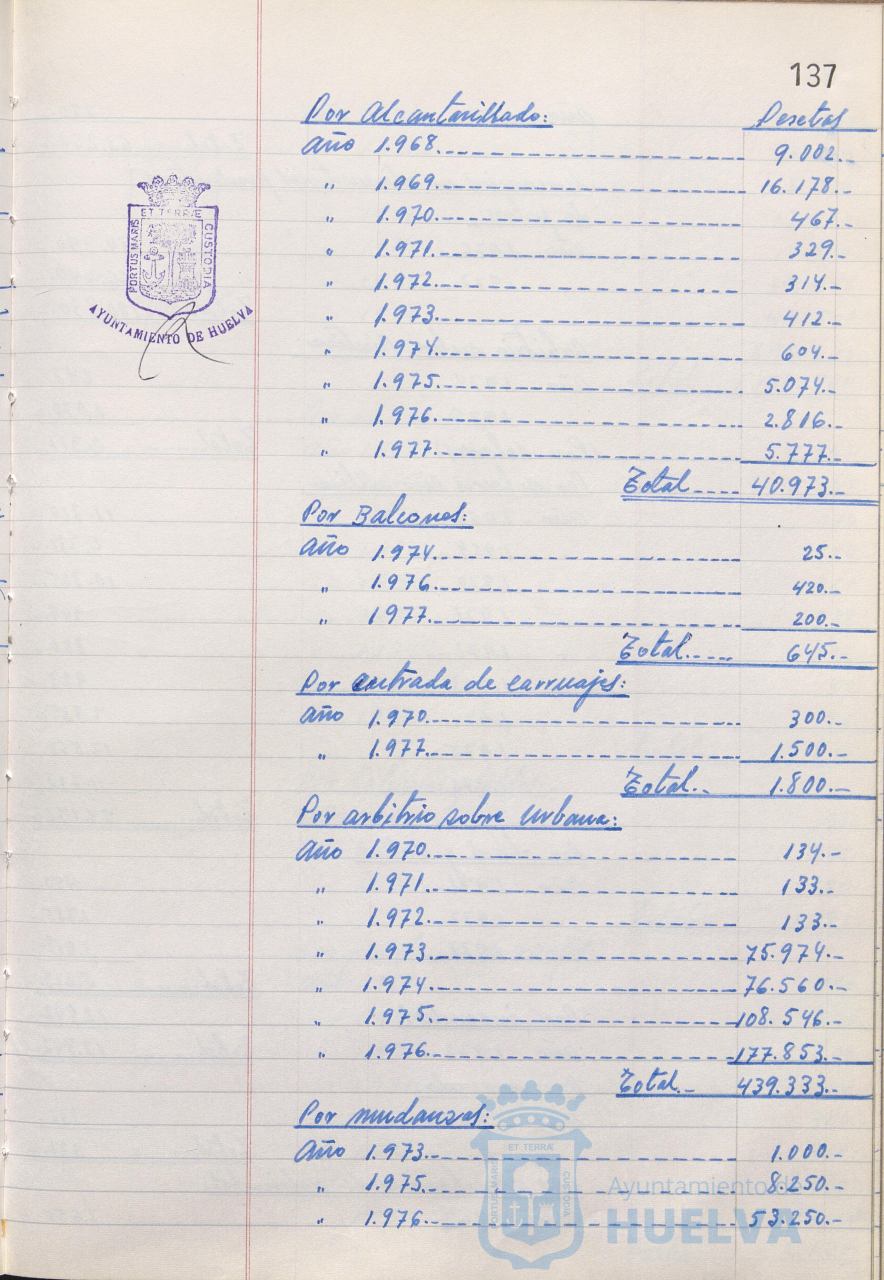 137
Por Alcantarillado: Pesetas
Año 1.968.------------ 9.002.-
" 1.969.------------ 16.178.-
" 1.970.------------ 467.-
" 1.971.------------ 329.-
" 1.972.------------ 314.-
" 1.973.------------ 412.-
" 1.974.------------ 604.-
" 1.975.------------ 5.074.-
" 1.976.------------ 2.816.-
" 1.977.------------ 5.777.-
Total ---- 40.973.-
Por Balcones:
Año 1.974.------------ 25.-
" 1.976.------------ 420.-
" 1977.------------ 200.-
Total.---- 645.-
Por entrada de carruajes:
Año 1.970.------------ 300.-
" 1.977.------------ 1.500.-
Total.. 1.800.-
Por arbitrio sobre Urbana:
Año 1.970.------------ 134.-
" 1.971.------------ 133.-
" 1.972.------------ 133.-
" 1.973.------------ 75.974.-
" 1.974.------------ 76.560.-
" 1.975.------------ 108.546.-
" 1.976.------------ 177.853.-
Total.- 439.333.-
Por mudanzas:
Año 1.973.------------ 1.000.-
" 1.975.------------ 8.250.-
" 1.976.------------ 53.250.-
PORTUS MARIS ET TERRÆ CUSTODIA
AYUNTAMIENTO DE HUELVA
PORTUS MARIS ET TERRÆ CUSTODIA
Ayuntamiento de
HUELVA